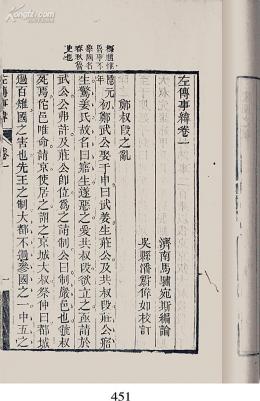 左傳事緯卷一
濟南馬驌宛斯編論
吳縣潘霨偉如校訂
鄭叔段之亂
隱元年
初鄭武公娶于申曰武姜生莊公及共叔段莊公寤
生驚姜氏故名曰寤生遂惡之愛共叔段欲立之亟請於
武公公弗許及莊公即位為之請制公曰制巖邑也虢叔
死焉佗邑唯命請京使居之謂之京城大叔祭仲曰都城
過百雉國之害也先王之制大都不過參國之一中五之
左傳事緯
卷一
451